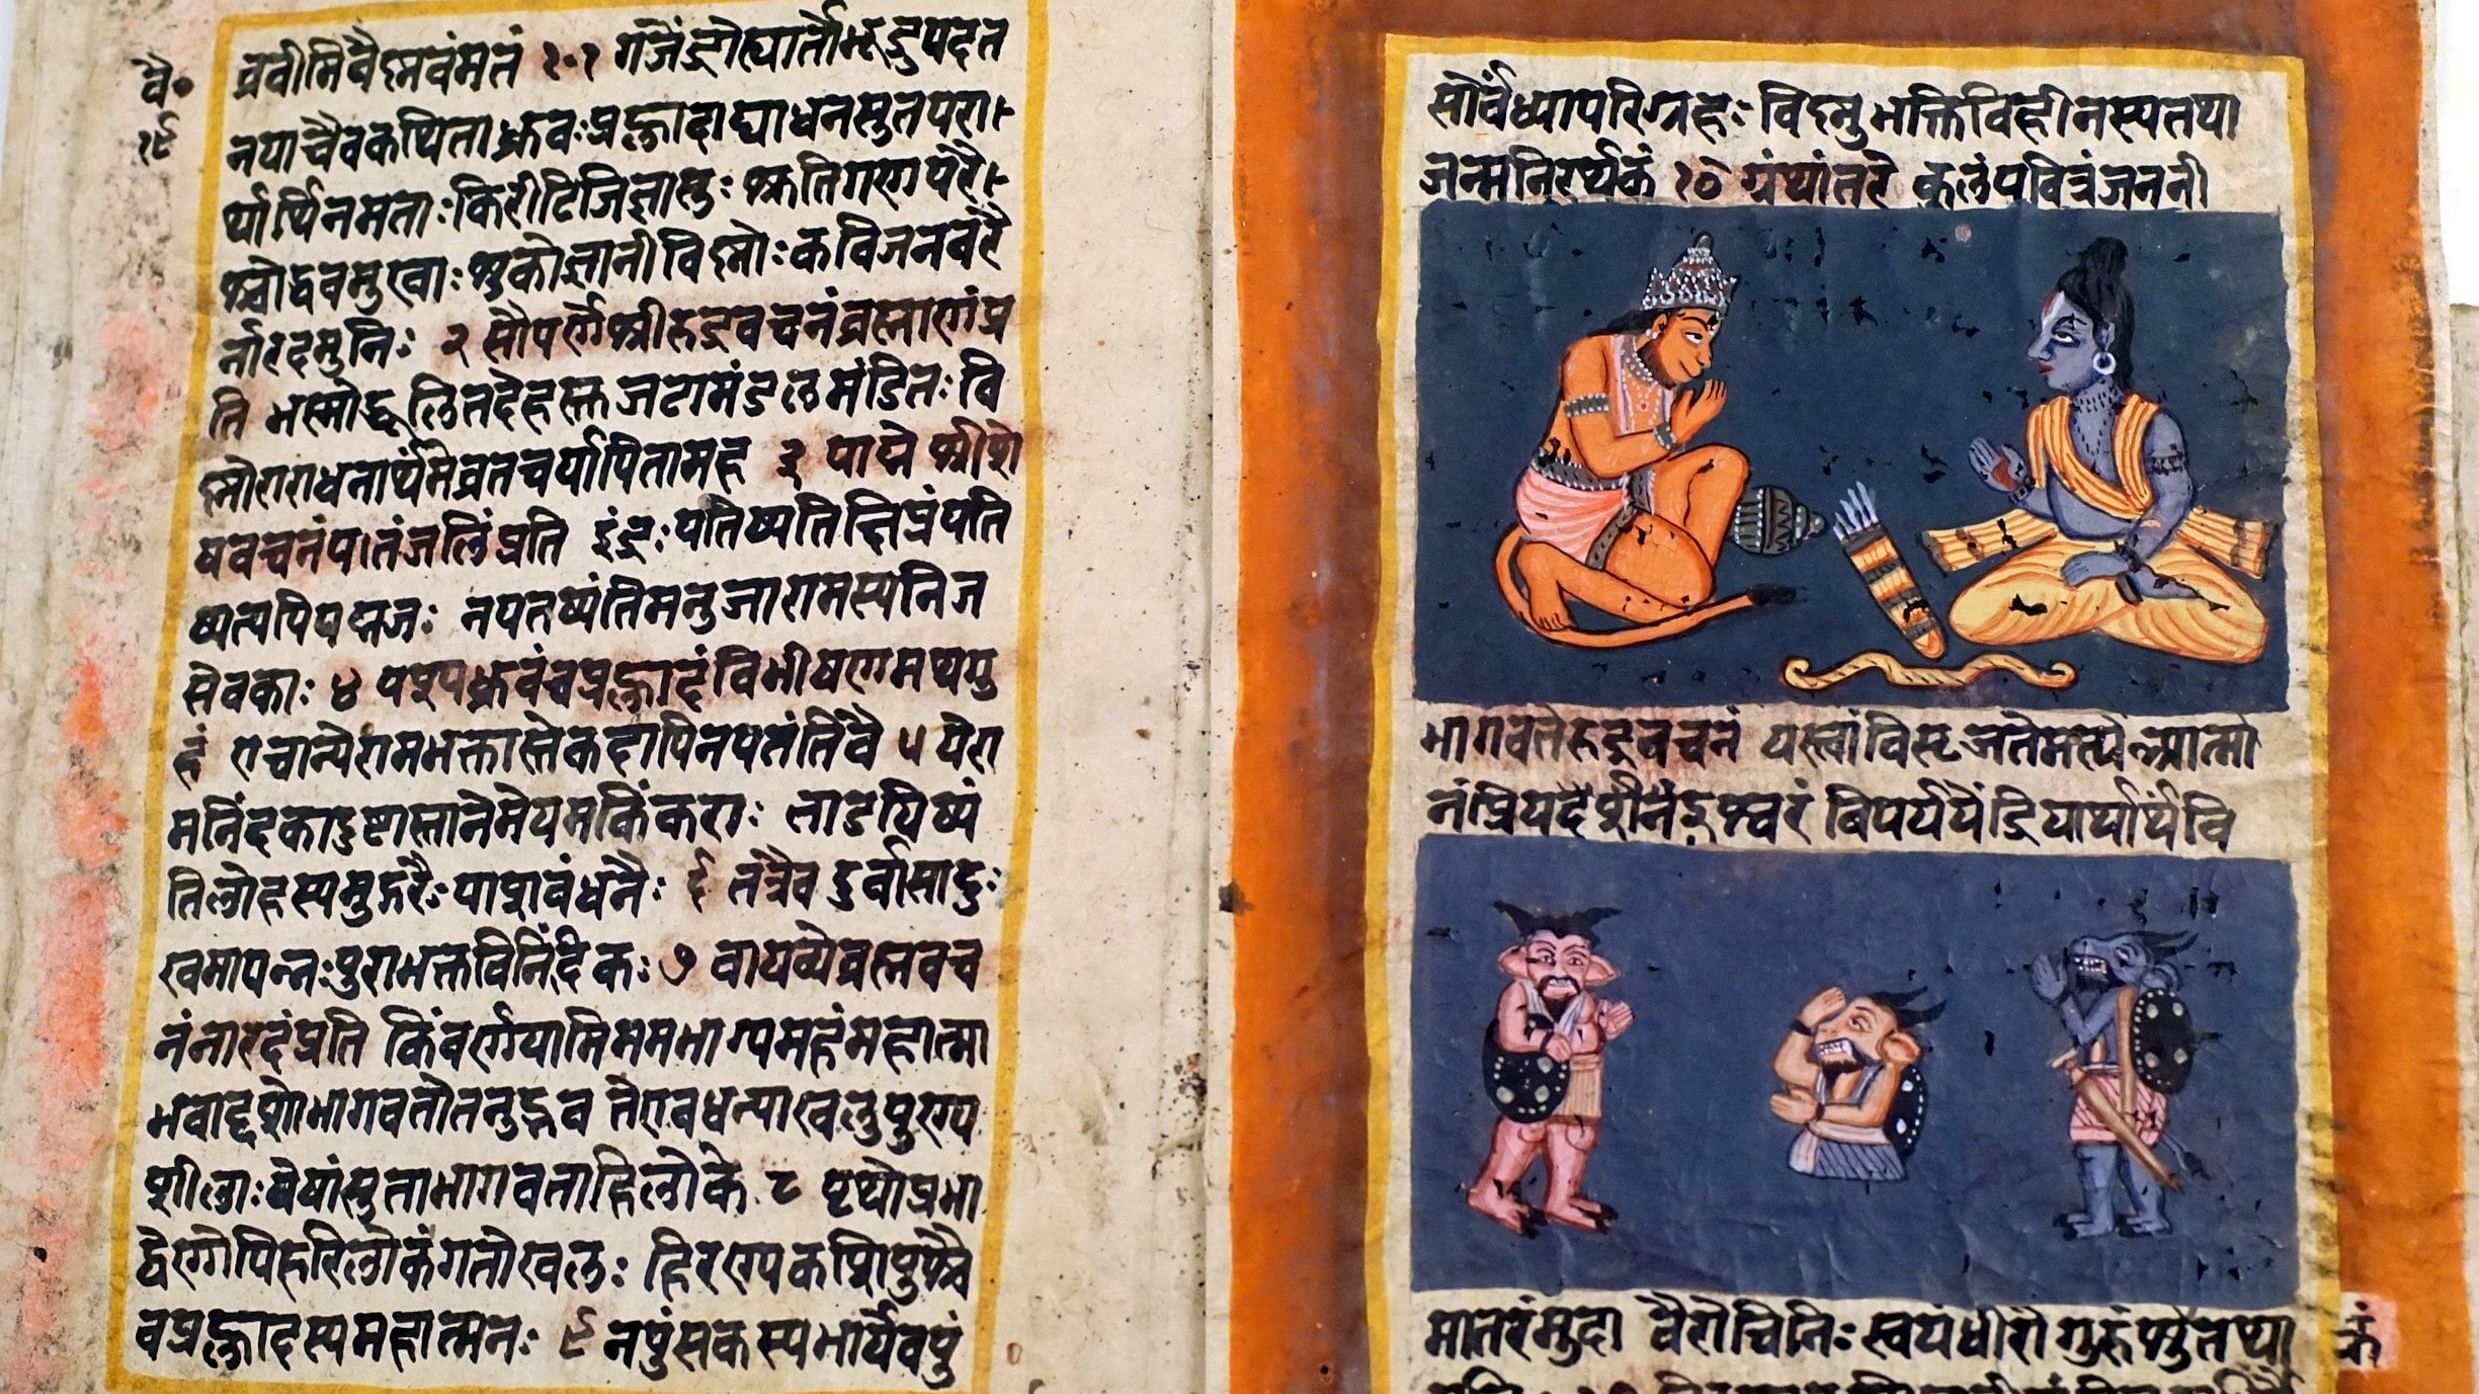 वै॰
१९
ब्रवीमिवैष्णवंमतं १॰१ गजेंद्रोह्यार्तोमरुद्रुपदत
नयाचैवकथिताध्रुवःप्रह्लादाद्याधनसुतपरा
र्थार्थिनमताःकिरीटिजिज्ञासुःश्रुतिगणपरै
श्चोद्धवमुखाःशुकोज्ञानीविष्णोःकविजनवरै
र्नारदमुनिः २ सौपर्णेश्रीरुद्रवचनंब्रह्माणंप्र
ति भस्मोद्धूलितदेहस्तजटामंडलमंडितःवि
ष्णोराराधनार्थंमेव्रतचर्यापितामह ३ पाद्मे श्रीशे
षवचनंपातंजलिंप्रति इंद्रःपतिष्यतिक्षिप्रंपति
ष्यत्यपिपद्मजः नपतष्यंतिमनुजारामस्यनिज
सेवकाः ४ पश्यध्रुवंचप्रह्लादंविभीषणमथगु
हं एचान्येराममभक्तास्तेकदापिनपतंतिवै ५ येरा
मनिंदकादुष्टास्तानेमेयमकिंकराः ताडयिष्यं
तिलोहस्यमुद्गरैःपाशबंधनैः ६ तत्रैव दुर्वासादुः
खमापन्नःपुराभक्तविनिंदकः ७ वायव्येब्रह्मवच
नंनारदंप्रति किंवर्णयामिममभाग्यमहंमहात्मा
भवादृशोभागवतोतनुद्भव तेएवधन्याखलुपुण्य
शीलाःयेषांसुताभागवताहिलोके ८ पृथोप्रभा
द्वेणोपिहरिलोकंगतोखलुः हिरण्यकशिपुश्चै
वप्रह्लादस्यमहात्मनः ९ नपुंसकस्यभार्येवपुं
सोवंध्यापरिग्रहः विष्णुभक्तिविहीनस्यतथा
जन्मनिरर्थकं १० ग्रंथांतरे कुलंपवित्रंजननी
भागवतेरुद्रवचनं यस्त्वांविसृजतेमर्त्यआत्मा
नंप्रियदेशीनंइश्वरं विपर्ययेंद्रियार्थार्थंवि
मातरंमुदा वैरोचिनिःस्वयंधीरोगुरुंश्रुतथ्या